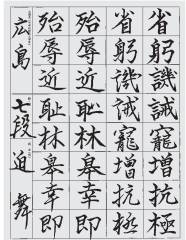 省躬譏誡寵増抗極
省躬譏誡寵増抗極
殆辱近恥林皋幸即
殆辱近耻林皋幸即
広島 七段 迫 舞